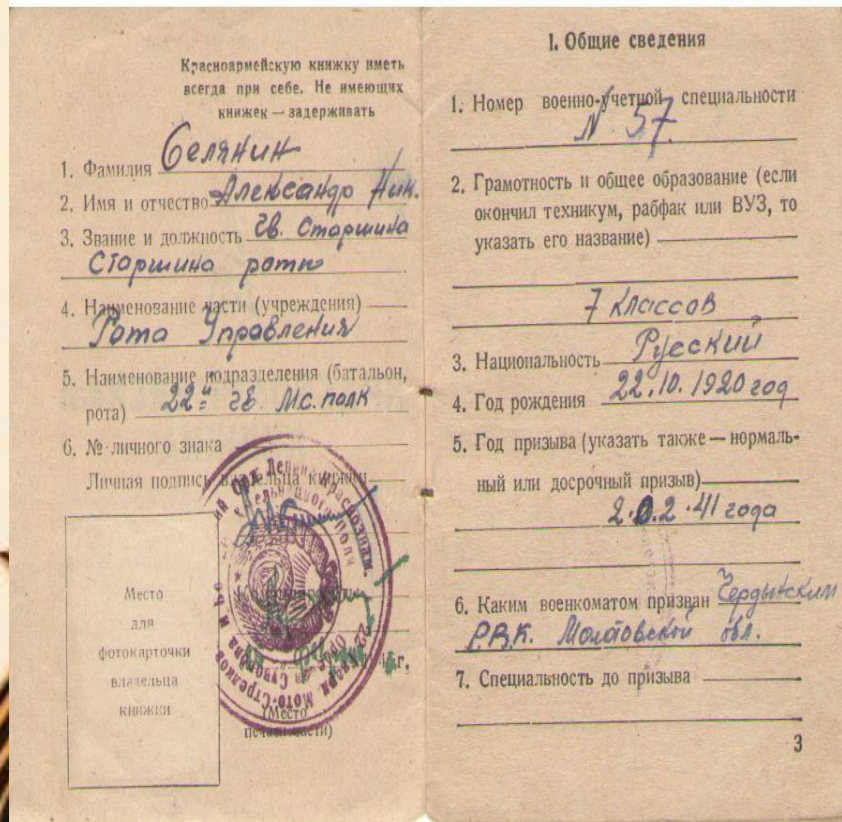 Красноармейскую книжку иметь
всегда при себе. Не имеющих
книжек — задерживать
1. Фамилия Селянин
2. Имя и отчество Александр Ник.
3. Звание и должность Гв. Старшина
Старшина роты
4. Наименование части (учреждения)
Рота Управления
5. Наименование подразделения (батальон,
рота) 22й гв. Мс. полк
6. № личного знака
Личная подпись владельца книжки
Место
для
фотокарточки
владельца
книжки
(Место
печати части)
I. Общие сведения
1. Номер военно-учетной специальности
N 57.
2. Грамотность и общее образование (если
окончил техникум, рабфак или ВУЗ, то
указать его название)
7 классов
3. Национальность Русский
4. Год рождения 22.10.1920 год
5. Год призыва (указать также — нормаль-
ный или досрочный призыв)
2.02.41 года
6. Каким военкоматом призван Чердынским
Р.В.К. Молотовской обл.
7. Специальность до призыва
3